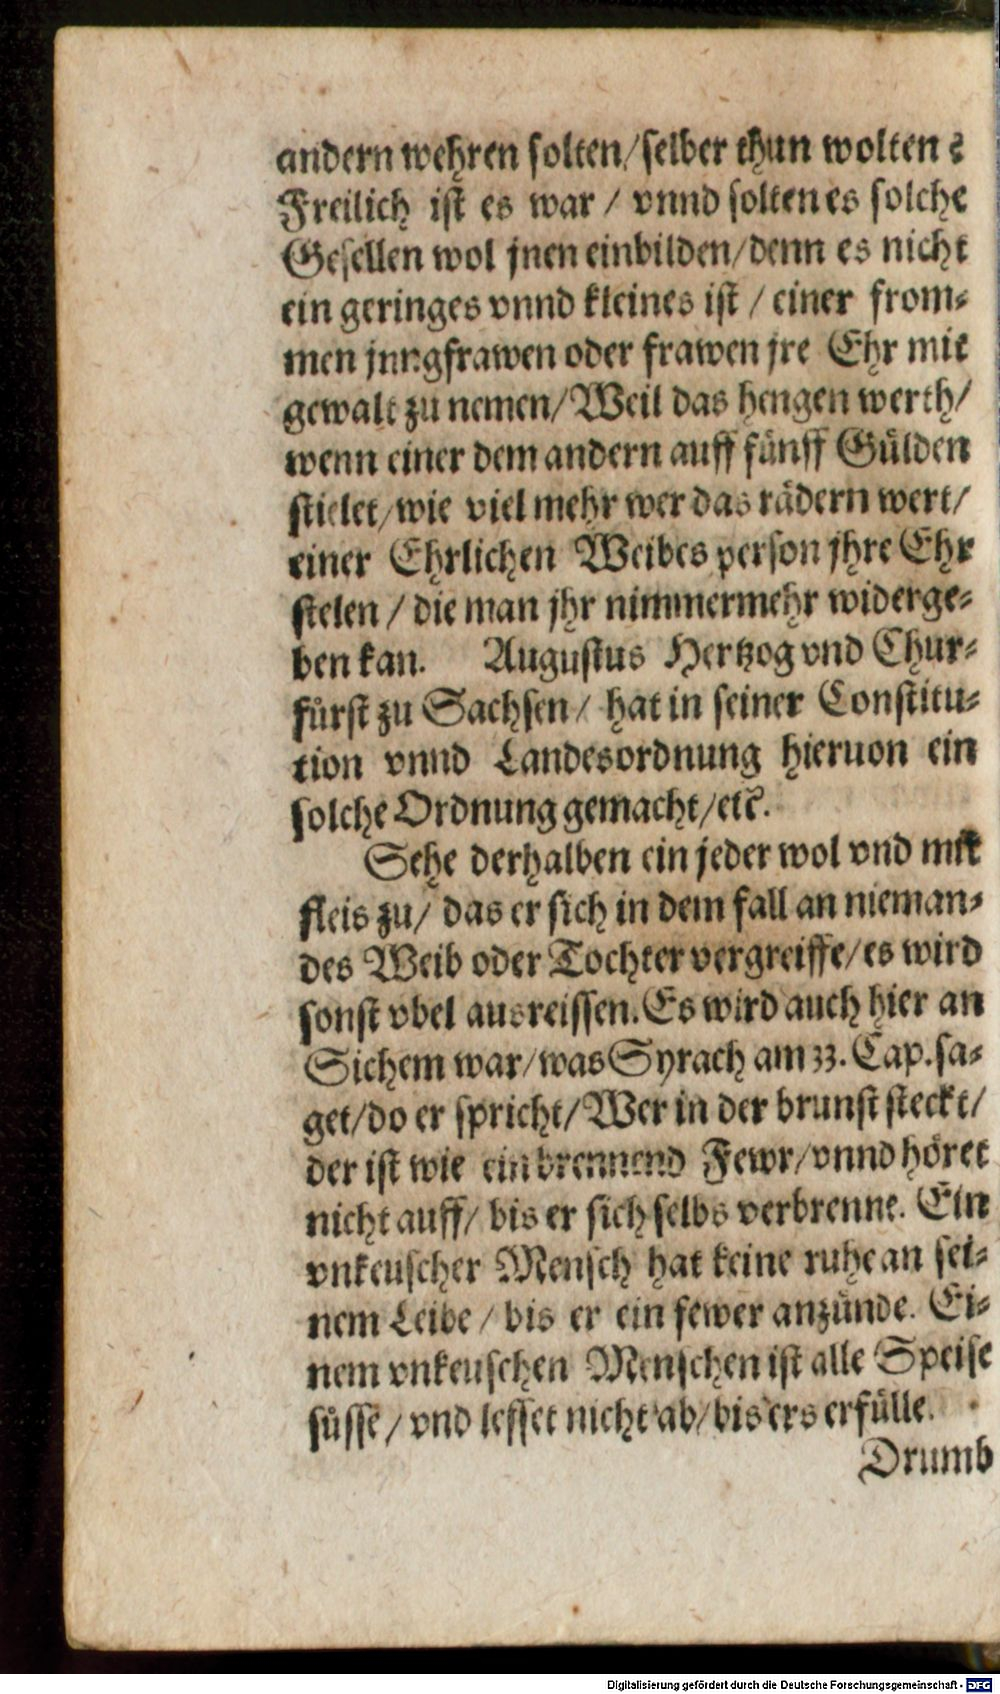 andern wehren solten/ selber thun wolten?
Freilich ist es war / vnnd solten es solche
Gesellen wol jnen einbilden/ denn es nicht
ein geringes vnnd kleines ist / einer from-
men jungfrawen oder frawen jre Ehr mit
gewalt zu nemen/ Weil das hengen werth/
wenn einer dem andern auff fünff Gülden
stielet/ wie viel mehr wer das rädern wert/
einer Ehrlichen Weibes person jhre Ehr
stelen / die man jhr nimmermehr widerge-
ben kan. Augustus Hertzog vnd Chur-
fürst zu Sachsen / hat in seiner Constitu-
tion vnnd Landesordnung hieruon ein
solche Ordnung gemacht/ etc.
Sehe derhalben ein jeder wol vnd mit
fleis zu/ das er sich in dem fall an nieman-
des Weib oder Tochter vergreiffe/ es wird
sonst vbel ausreissen. Es wird auch hier an
Sichem war/ was Syrach am 33. Cap. sa-
get/ do er spricht/ Wer in der brunst steckt/
der ist wie ein brennend Fewr/ vnnd höret
nicht auff/ bis er sich selbs verbrenne. Ein
vnkeuscher Mensch hat keine ruhe an sei-
nem Leibe / bis er ein fewer anzünde. Ei-
nem vnkeuschen Menschen ist alle Speise
süsse / vnd lesset nicht ab/ bis ers erfülle.
Drumb
Digitalisierung gefördert durch die Deutsche Forschungsgemeinschaft - DFG